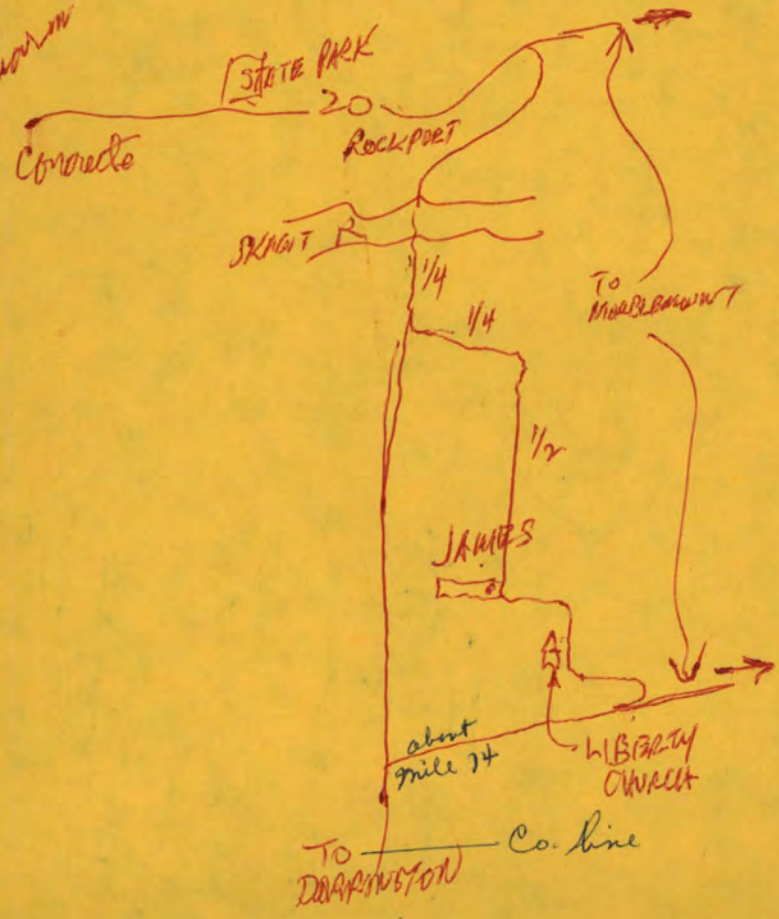 STATE PARK
20
Concrete
ROCKPORT
SKAGIT R
1/4
1/4
TO
MARBLEMOUNT
1/2
JAMES
about
mile 14
LIBERTY
CHURCH
TO
DARRINGTON
Co. line